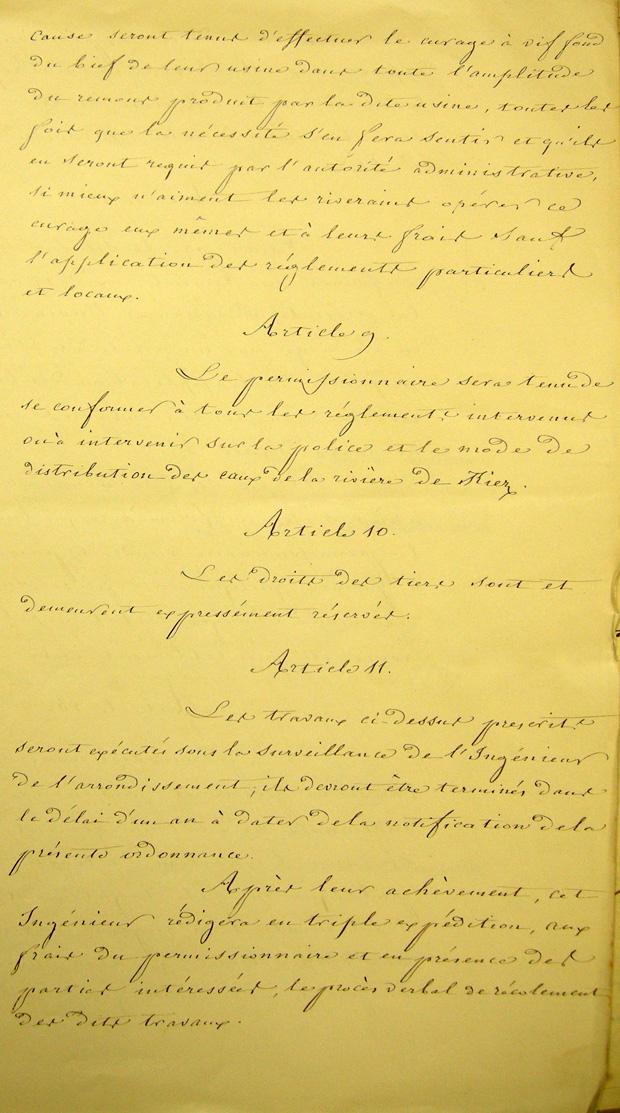 cause seront tenus d'effectuer le curage à vif fond
du bief de leur usine dans toute l'amplitude
du remous produit par la dite usine, toutes les
fois que la nécessité s'en fera sentir et qu'ils
en seront requis par l'autorité administrative,
si mieux n'aiment les riverains opérer ce
curage eux mêmes et à leurs frais sauf
l'application des réglements particuliers
et locaux.
Article 9.
Le permissionnaire sera tenu de
se conformer à tous les réglements intervenus
ou à intervenir sur la police et le mode de
distribution des eaux de la rivière de Kiez.
Article 10.
Les droits des tiers sont et
demeurent expressément réservés.
Article 11.
Les travaux ci-dessus prescrits
seront exécutés sous la surveillance de l'Ingénieur
de l'arrondissement, ils devront être terminés dans
le délai d'un an à dater de la notification de la
présente ordonnance.
Après leur achèvement, cet
Ingénieur rédigera en triple expédition, aux
frais du permissionnaire et en présence des
parties intéressées, le procès verbal de récolement
des dits travaux.